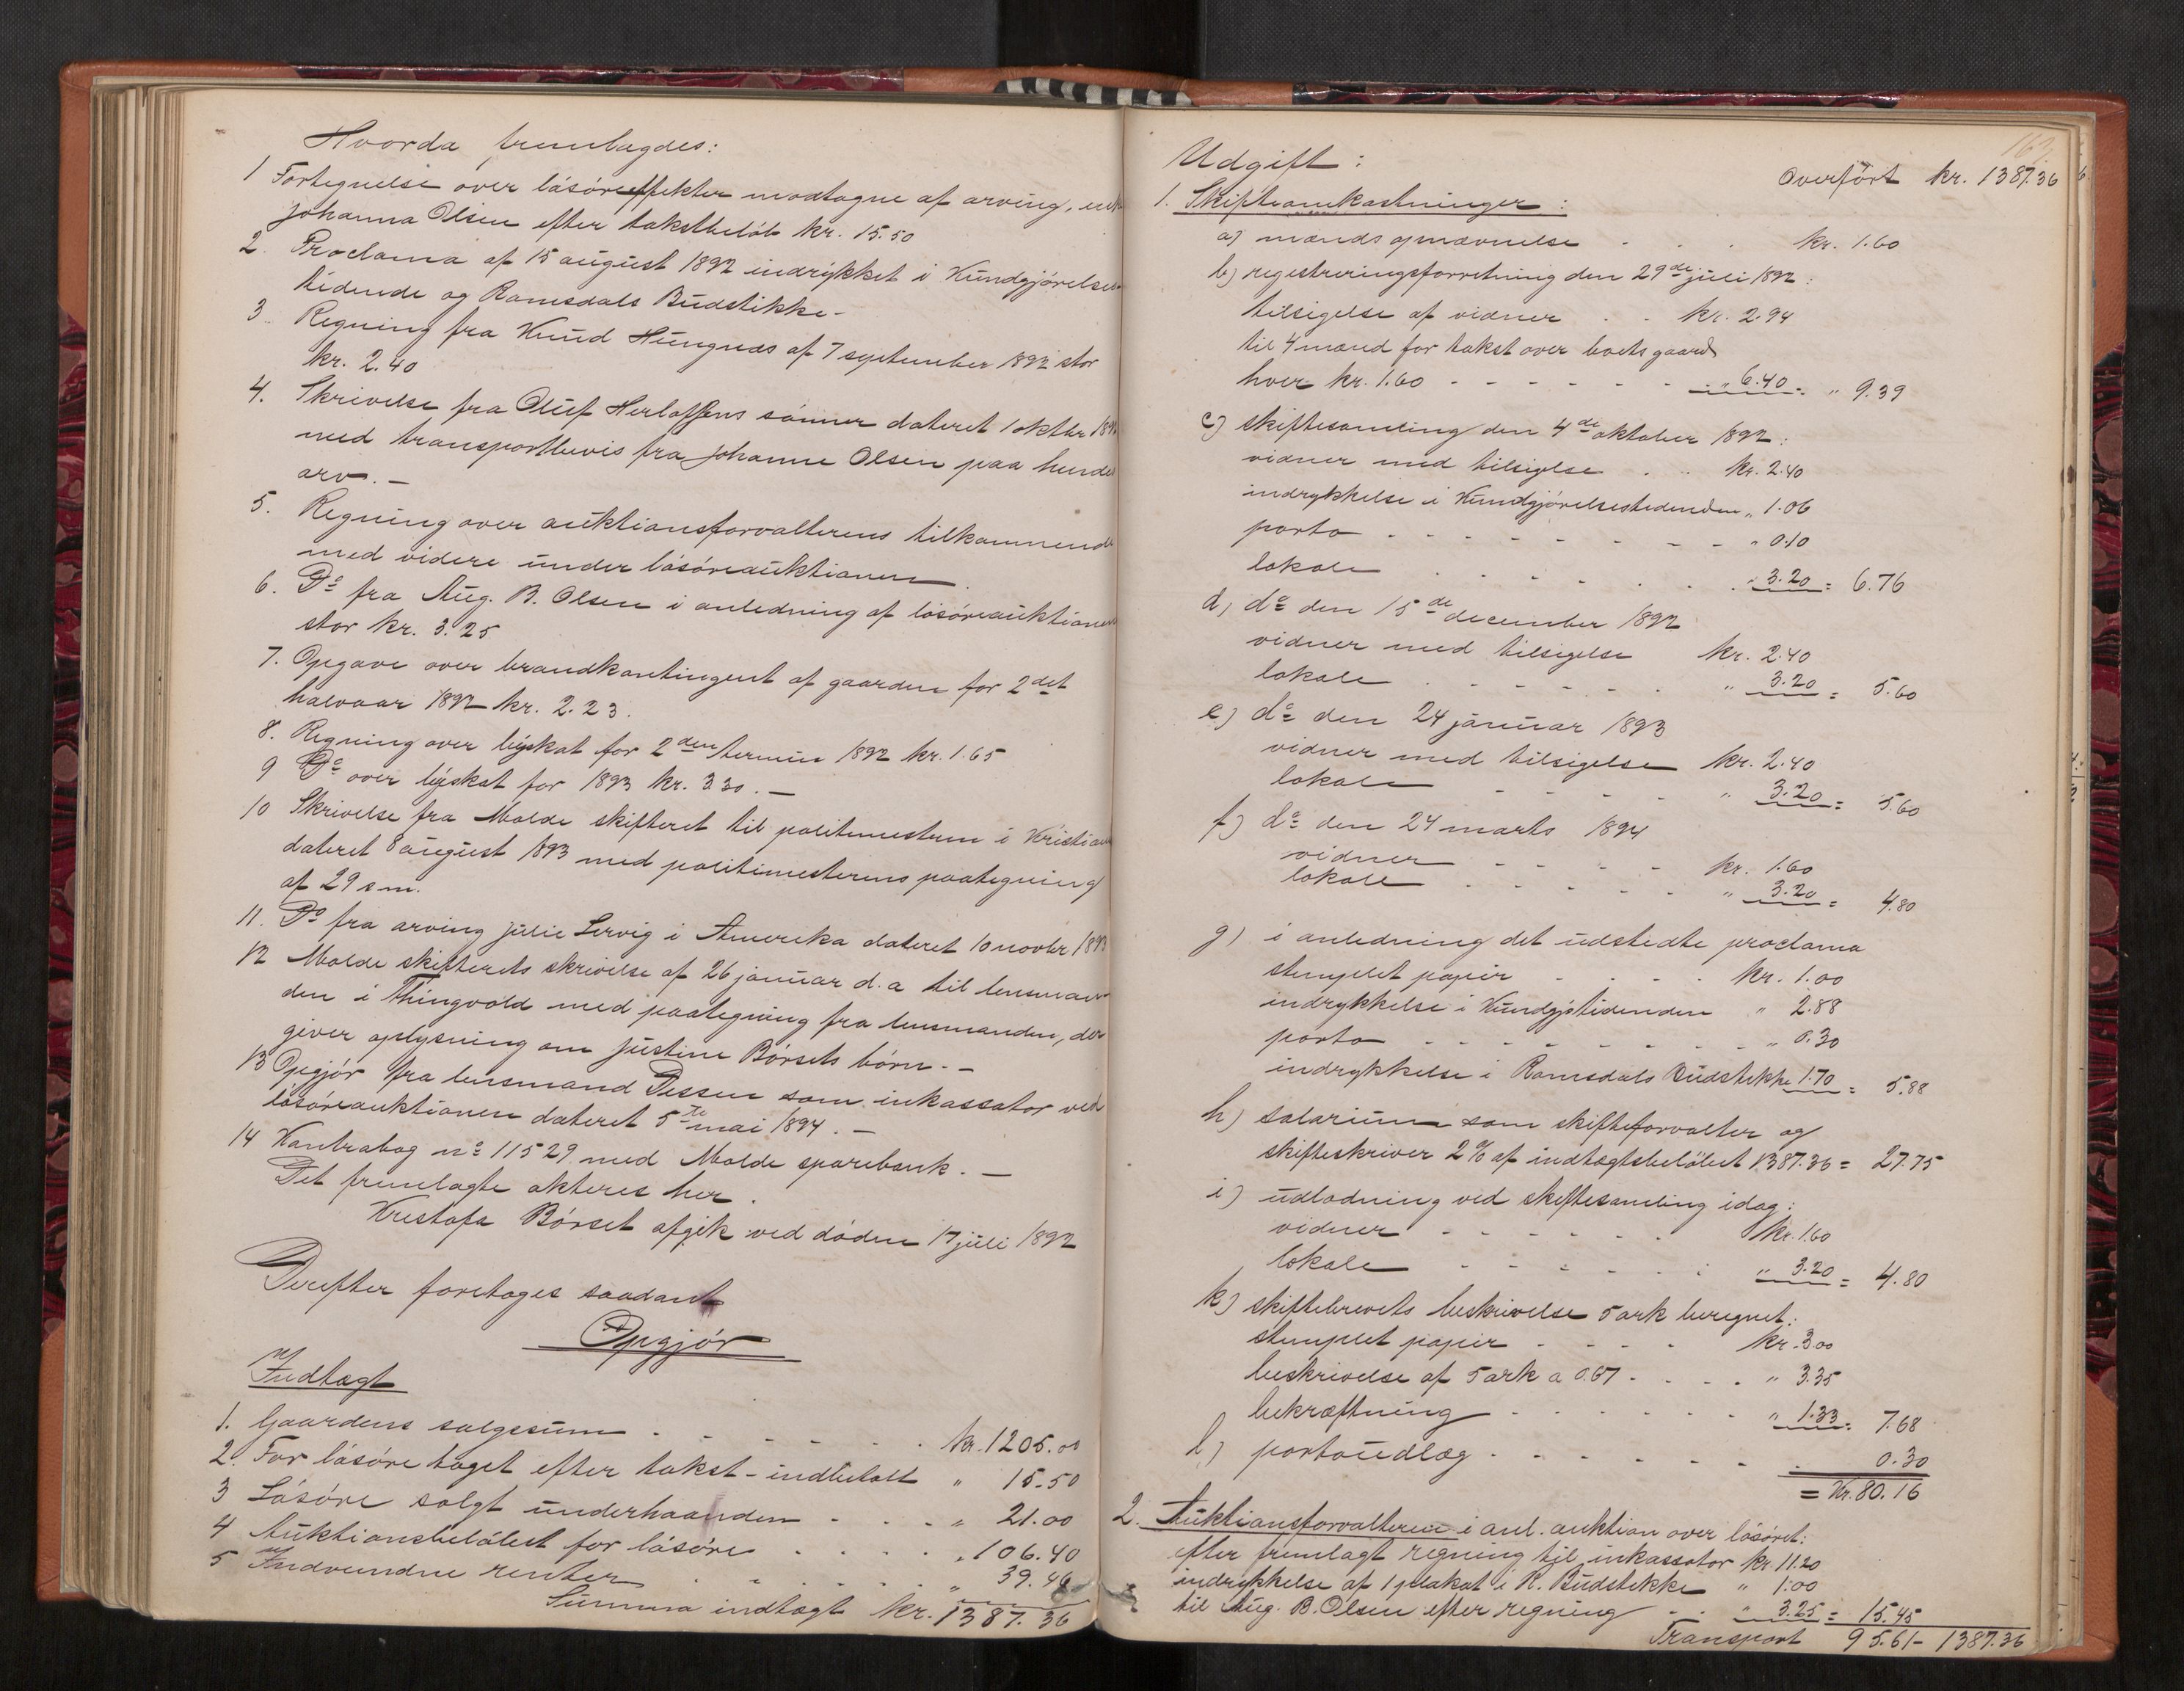 Hvorda fremlagdes:
1 Fortegnelse over løsøreffekter modtagne af arving, enke
Johanna Olsen efter takstbeløb kr. 15.50
2. Proclama af 15 august 1892 indrykket i Kundgjørelses
tidende og Romsdals Budstikke -
3. Regning fra Knud Hungnes af 7 september 1892 stor
kr. 2.40
4. Skrivelse fra Oluf Herlofsens sønner dateret 1 oktbr 1892
med transportbevis fra Johanne Olsen paa hendes
arv. -
5. Regning over auktionsforvalterens tilkommende
med videre under løsøreauktionen.
6. Do fra Aug. B. Olsen i anledning af løsøreauktionen
stor kr. 3.25
7. Opgave over brandkontingent af gaarden for 2det
halvaar 1892 kr. 2.23.
8. Regning over byskat for 2den termin 1892 kr. 1.65
9 Do over byskat for 1893 kr. 3.30. -
10 Skrivelse fra Molde skifteret til politimesteren i Kristian
dateret 8 august 1893 med politimesterens paategning
af 29 s.m.
11. Do fra arving Julie Lervig i Amerika dateret 10 novbr 1893
12 Molde skifterets skrivelse af 26 januar d.a til lensman
den i Thingvold med paategning fra lensmanden, der
giver oplysning om Justine Børsets børn. -
13 Opgjør fra lensmand Dessen som inkassator ved
løsøreauktionen dateret 5te mai 1894. -
14 Kontrabog no 11529 med Molde sparebank. -
Det fremlagte akteres her.
Kristofa Børset afgik ved døden 17 juli 1892
Derefter foretoges saadant
Opgjør
Indtægt
1. Gaardens salgssum . . . . . kr. 1205.00
2. For løsøre taget efter takst - indbetalt " 15.50
3 Løsøre solgt underhaanden . . . " 21.00
4 Auktionsbeløbet for løsøre . . . . " 106.40
5 Indvundne renter . . . . . " 39.46
Summa indtægt kr. 1387.36
162.
Udgift :
Overført kr. 1387.36
1. Skifteomkostninger :
a) mænds opnævnelse . . . kr. 1.60
b) registreringsforretning den 29de juli 1892 :
tilsigelse af vidner . . kr. 2.94
til 4 mænd for takst over boets gaard
hver kr. 1.60 - - - - - - " 6.40 = " 9.39
c) skiftesamling den 4de oktober 1892 :
vidner med tilsigelse . . kr. 2.40
indrykkelse i Kundgjørelsestidenden " 1.06
porto - - - - - - - - " 0.10
lokale . . . . . . " 3.20 = 6.76
d) do den 15de december 1892
vidner med tilsigelse kr. 2.40
lokale . . . . . . " 3.20 = 5.60
e) do den 24 januar 1893
vidner med tilsigelse kr. 2.40
lokale - - - - " 3.20 = 5.60
f) do den 24 marts 1894
vidner - - - - kr. 1.60
lokale . . . . . " 3.20 = 4.80
g) i anledning det udstedte proclama
stemplet papir . . . . kr. 1.00
indrykkelse i Kundgjstidenden " 2.88
porto - - - - - - - - " 0.30
indrykkelse i Romsdals Budstikke 1.70 = 5.88
h) salarium som skifteforvalter og
skifteskriver 2% af indtægtsbeløbet 1387.36 = 27.75
i) udlodning ved skiftesamling idag :
vidner - - - - - - kr. 1.60
lokale - - - - - " 3.20 = 4.80
k) skiftebrevets beskrivelse 5 ark beregnet :
stemplet papir - - - - kr. 3.00
beskrivelse af 5 ark a 0.67 - . . . " 3.35
bekræftning - - - - - - " 1.33 = 7.68
l) portoudlæg . - - - - - - 0.30
= kr. 80.16
2. Auktionsforvalteren i anl. auktion over løsøret :
efter fremlagt regning til inkassator kr. 11.20
indrykkelse af 1 plakat i R. Budstikke " 1.00
til Aug. B. Olsen efter regning - . " 3.25 = 15.45
Transport 95.61 - 1387.36